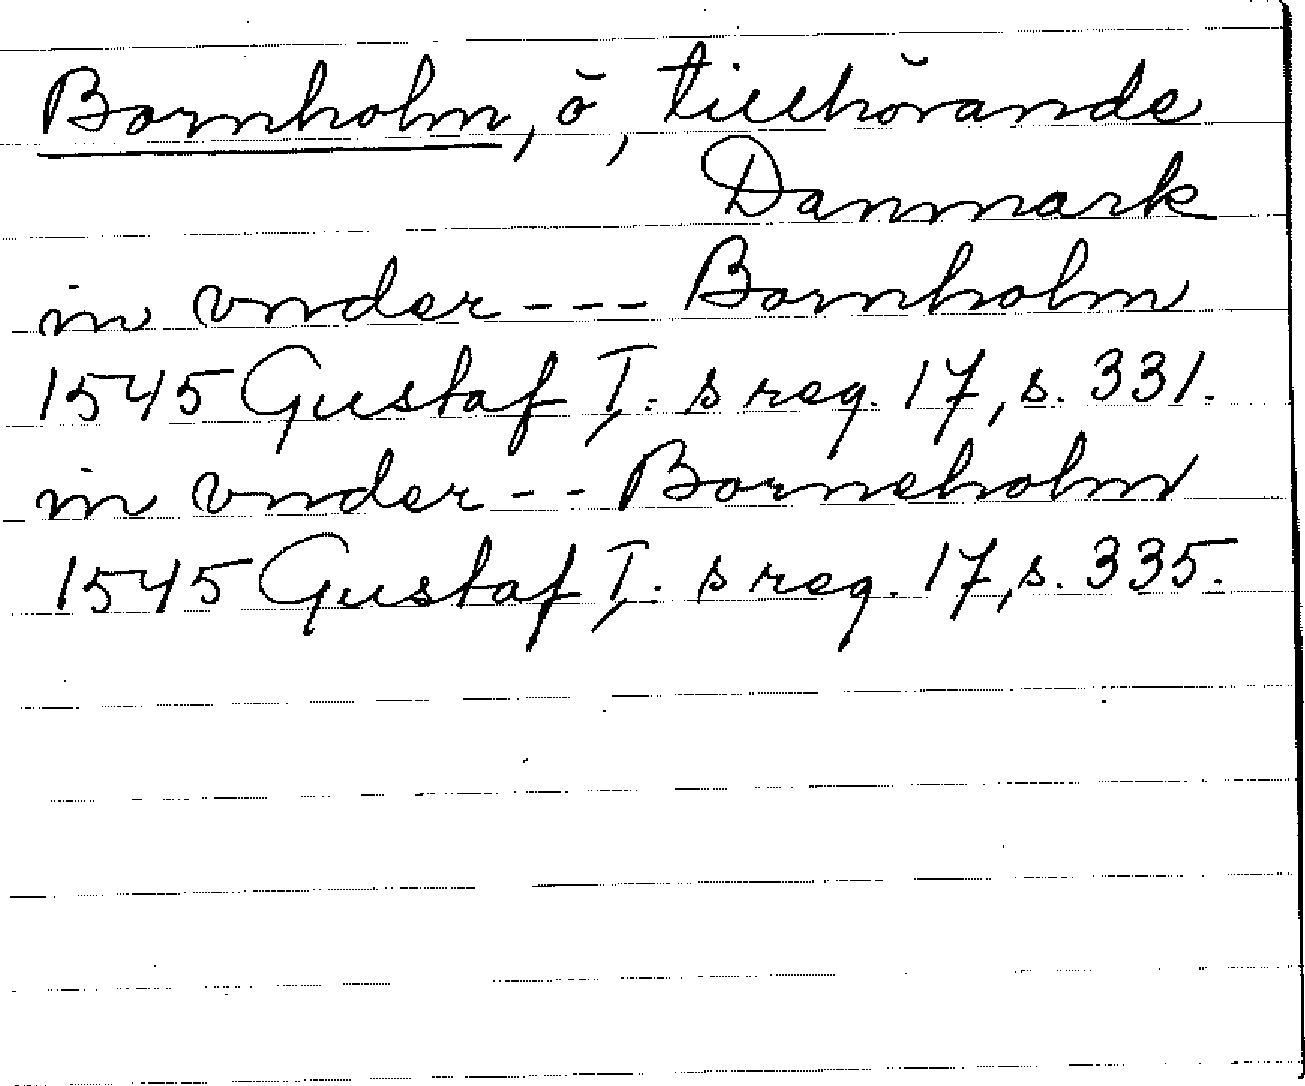 Bornholm, ö, tillhörande
Danmark
in vnder --- Bornholm
1545 Gustaf I:s reg. 17, s. 331.
in vnder -- Borneholm
1545 Gustaf I:s reg. 17, s. 335.